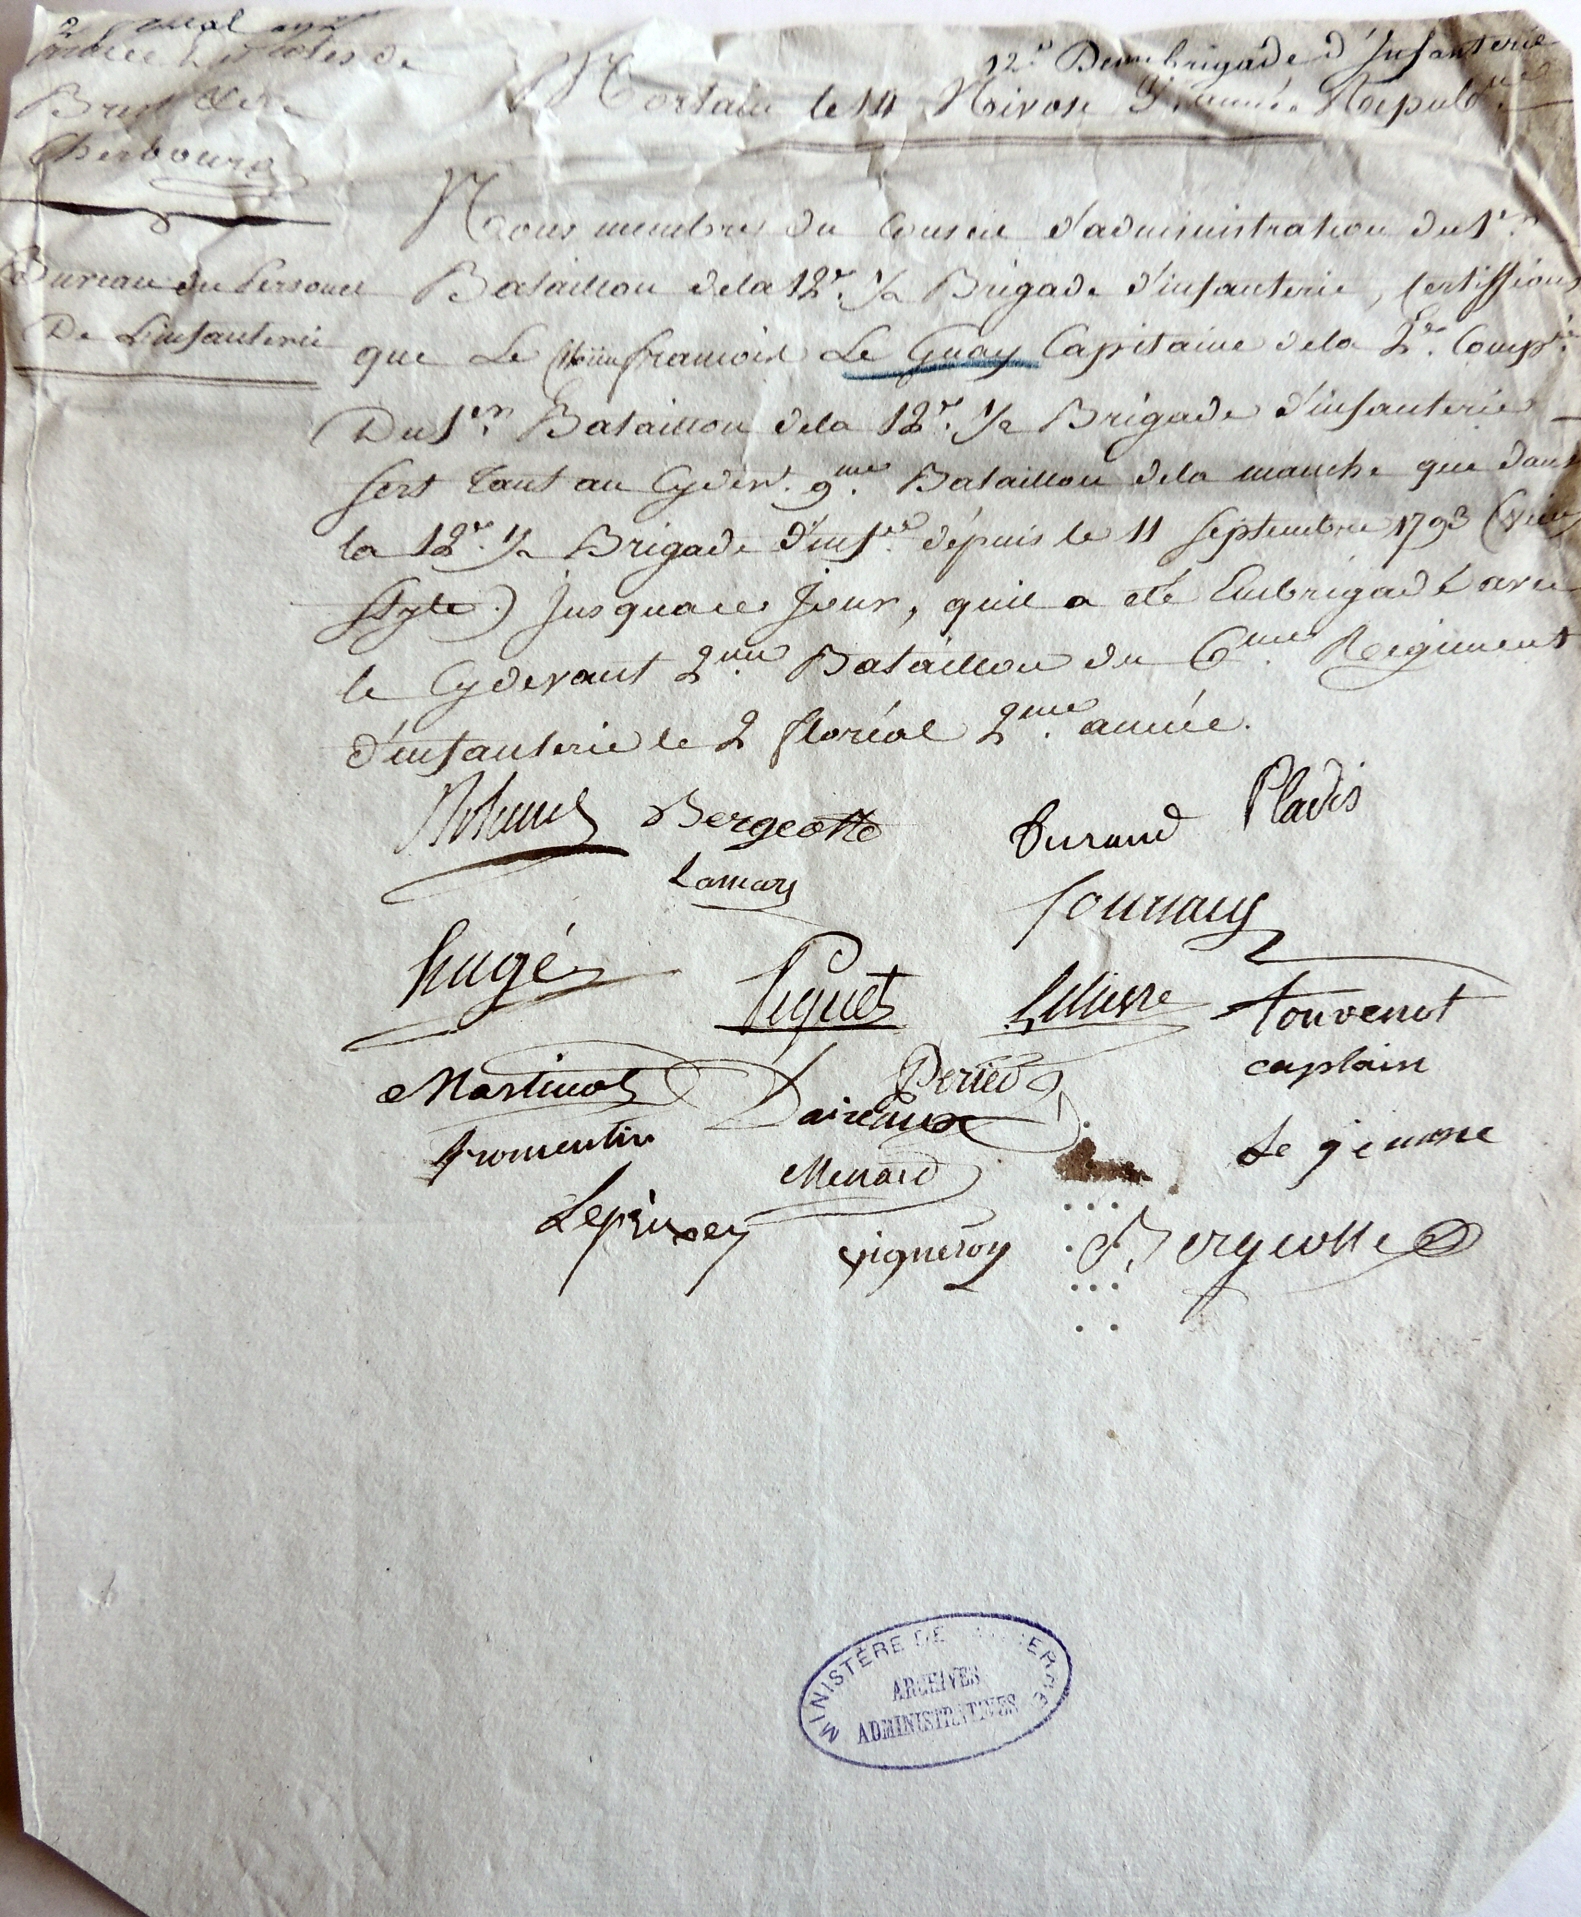 12e Demi brigade d'Infanterie
armée des Côtes de
Brest & de
Cherbourg
Bureau du Personnel
De L'infanterie
Mortain le 14 Nivose 3e année Republ.ne
Nous membres du Conseil d'administration du 1er
Bataillon dela 12e. 1/2 Brigade d'infanterie, Certiffions
que Le Citoïen francois Le Guay Capitaine dela 2e. Comp.ie
Du 1er. Bataillon dela 12e. 1/2 Brigade d'infanterie
sert tant au Cydevt. 9me. Bataillon dela manche que dans
la 12e. 1/2 Brigade d'infrie. dépuis le 11 Septembre 1793 (vieux
Style.) Jusquace Jour, quil a eté Embrigadé avec
le Cydevant 2me. Bataillon du 6me. Regiment
d'infanterie le 2 floréal 2me. année.
Bergeotte
Durand
Pladis
Lamary
Hugé
Piquet
touvenot
captain
Martinot
Daireaux
fromentin
Menard
vigneron
Bergeotte
MINISTÈRE DE LA GUERRE
ARCHIVES
ADMINISTRATIVES